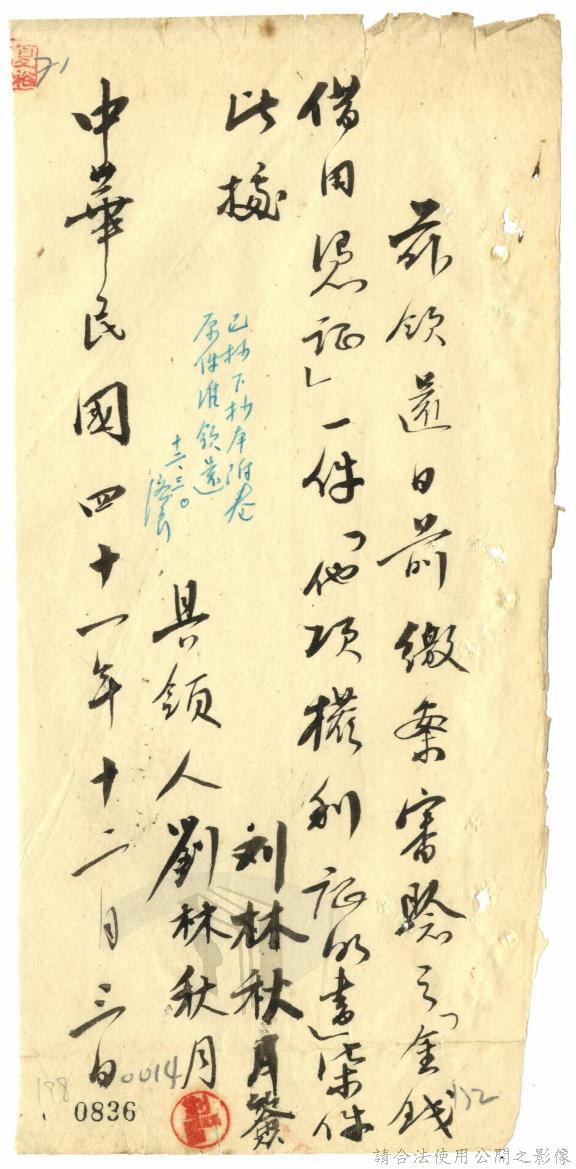 茲領還日前繳案審驗之「金錢
借用憑证」一件「他項權利证明書」柒件
此據
已抄下抄本附卷
原件准領還
十二、三〇
刘林秋月簽
具領人劉林秋月
中華民國四十一年十二月三日
0014
198
0836
請合法使用公開之影像